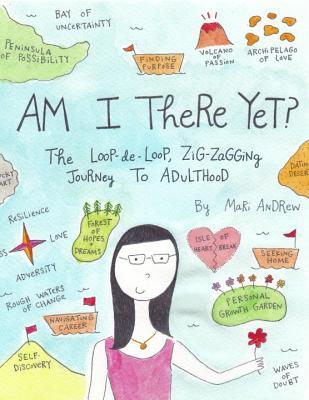 BAY OF
UNCERTAINTY
PENINSULA
OF POSSIBILITY
FINDING
PURPOSE
VOLCANO
OF
PASSION
ARCHIPELAGO
OF LOVE
AM I THeRe YeT?
The Loop-de-Loop, ZiG-ZaGGing
Journey To ADulTHooD
By Mari AnDrew
DATING
DESER
ART
ReSiLieNCe
LOVE
ADVERSITY
FOREST
OF
HOPES
+
DREAMS
ISLE OF
HEART BREAK
SEEKING
HOME
ROUGH WATERS
OF CHANGE
NAVIGATING
CAREER
PERSONAL
GROWTH GARDEN
SELF-
DISCOVERY
WAVES
OF DOUBT